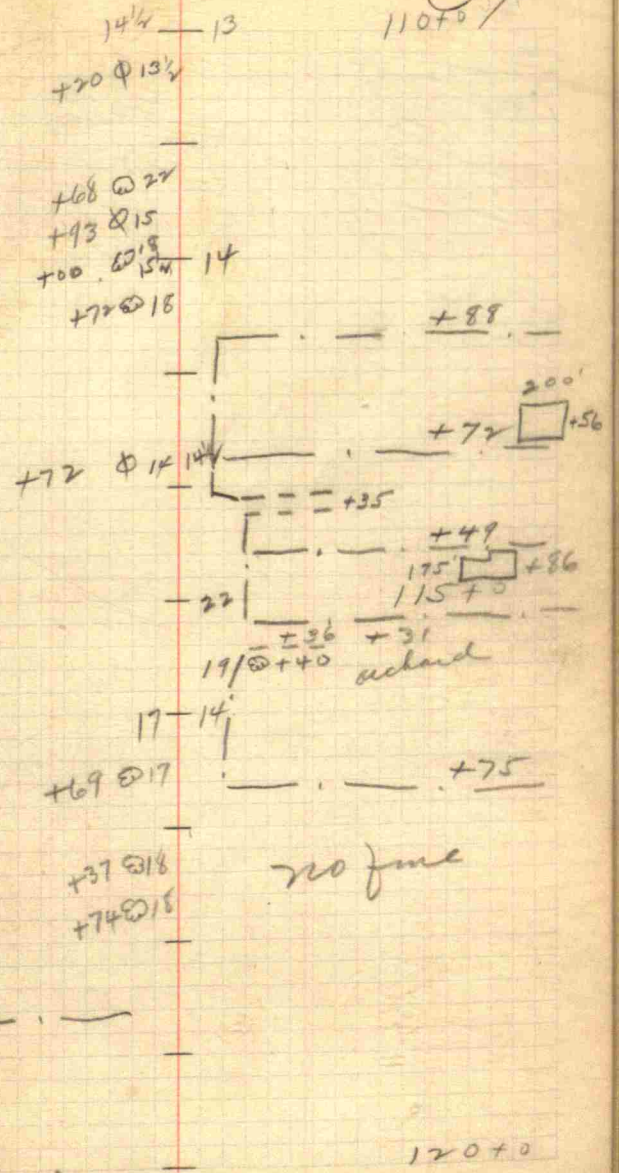 14½ 13 110+0
+20 Φ 13½
+68 22
+93 Φ 15
18
+00 15½ 14
+72 18
+88
200'
+72 +56
+72 Φ 14 14½
+35
+49
175' +86
115+0
22
+36 +31
19 +40 orchard
17 14
+69 17 +75
+37 18 no fence
+74 18
120+0